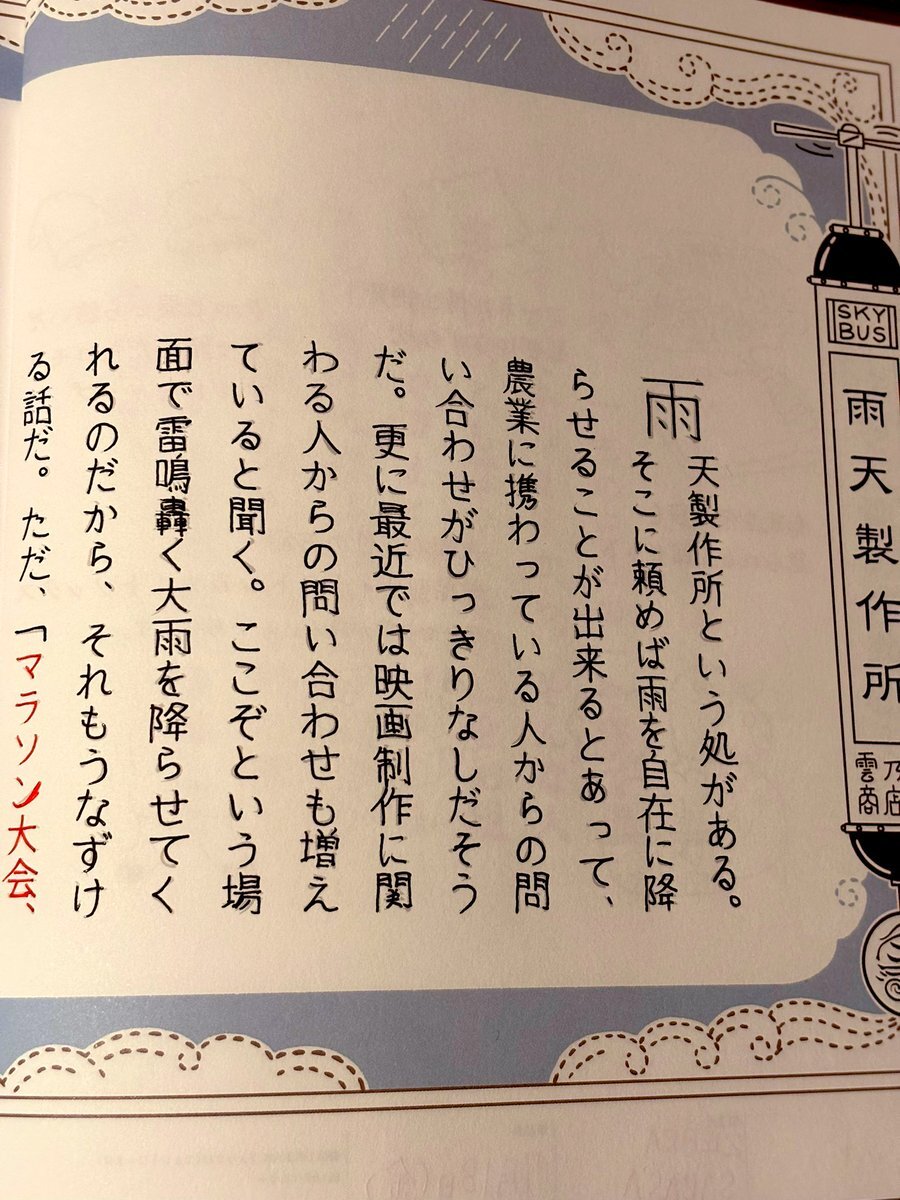 SKY
BUS
雨天製作所
雲乃
商店
雨天製作所という処がある。
そこに頼めば雨を自在に降
らせることが出来るとあって、
農業に携わっている人からの問
い合わせがひっきりなしだそう
だ。更に最近では映画制作に関
わる人からの問い合わせも増え
ていると聞く。ここぞという場
面で雷鳴轟く大雨を降らせてく
れるのだから、それもうなずけ
る話だ。ただ、「マラソン大会、